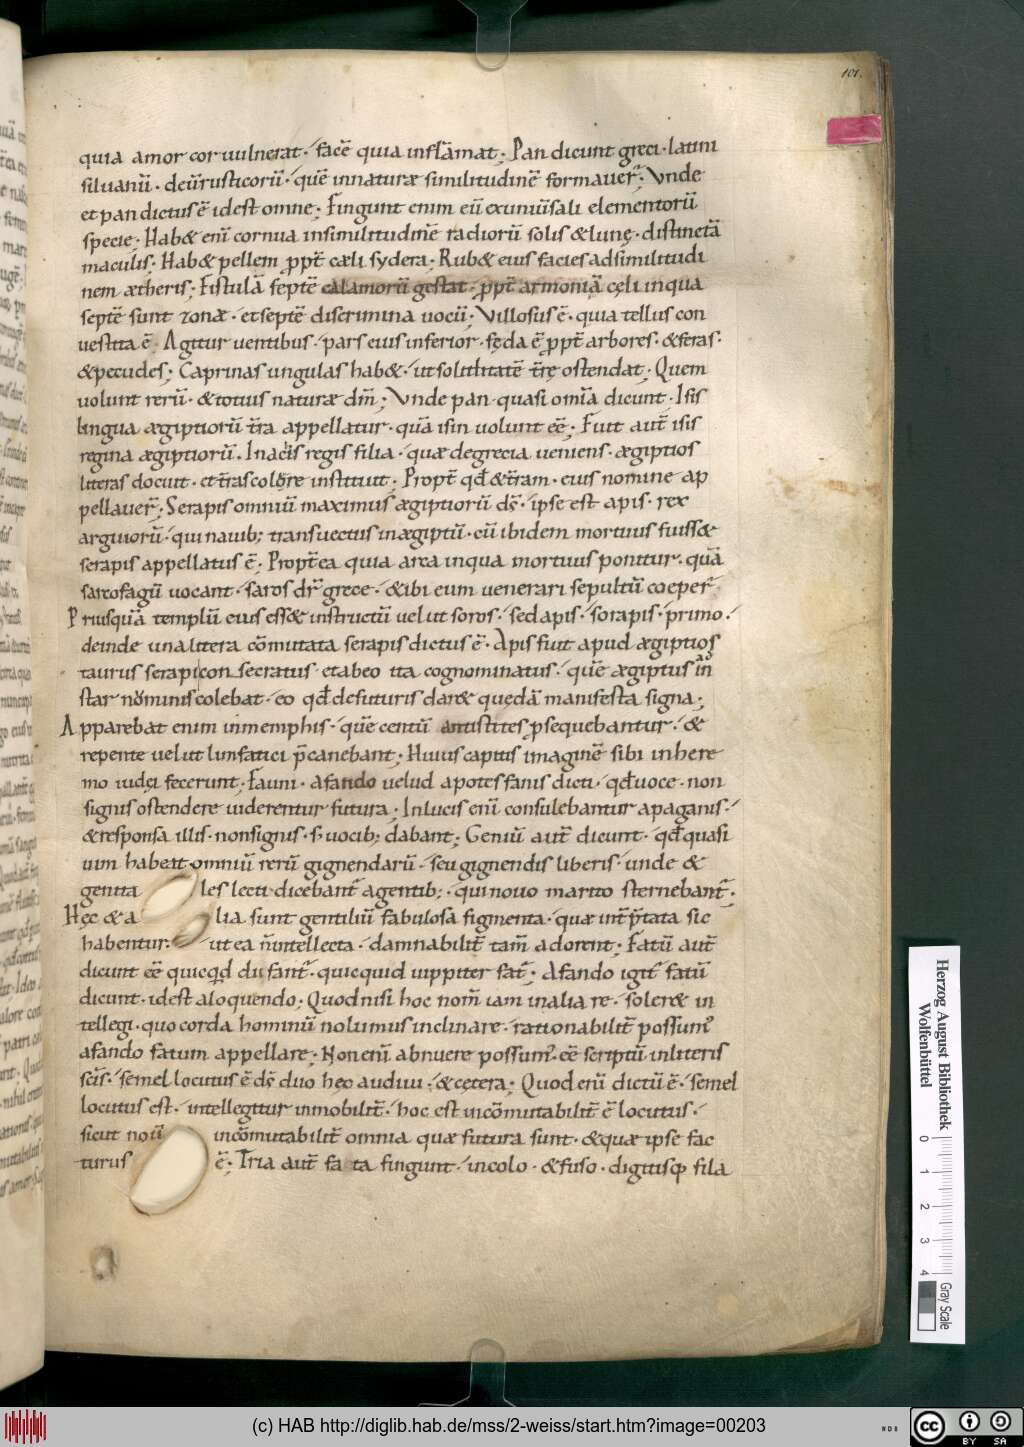 101.
quia amor cor uulnerat· facē quia inflāmat; Pan dicunt greci· latini
siluanū· deū rusticorū· quē innaturæ similitudinē formauer̄; Vnde
et pan dictus ē idest omne; Fingunt enim eū exuniuīsali elementorū
specie; Hab& enī cornua insimilitudinē radiorū solis & lunę· distinctā
maculis; Hab& pellem ꝓpt̄ cæli sydera; Rub& eius facies adsimilitudi
nem ætheris; Fistulā septē calamorū gestat· ꝓpt̄ armoniā cęli inqua
septē sunt zonæ· et septē discrimina uocū; Villosus ē· quia tellus con
uestita ē; Agitur uentibus· pars eius inferior· fęda ē ꝓpt̄ arbores· & feras·
& pecudes; Caprinas ungulas hab&· ut soliditatē t̄rę ostendat; Quem
uolunt rerū· & totius naturæ dm̄; Vnde pan quasi omīa dicunt· Isis
lingua ægiptiorū t̄ra appellatur· quā isin uolunt eē; Fuit aut̄ isis
regina ægiptiorū· Inachis regis filia· quæ degrecia ueniens· ægiptios
literas docuit· et t̄ras colere instituit; Propt̄ qđ & t̄ram· eius nomine ap
pellauer̄; Serapis omniū maximus ægiptiorū ds̄· ipse est apis· rex
argiuorū· qui nauib; transuectus inægiptū· cū ibidem mortuus fuiss&
serapis appellatus ē· Propt̄ea quia arca inqua mortuus ponitur· quā
sarcofagū uocant· saros dr̄ grece· & ibi eum uenerari sepultū coeper̄
Priusquā templū eius ess& instructū uelut soros· sed apis· sorapis· primo·
deinde una litera cōmutata serapis dictus ē· Apis fuit apud ægiptios
taurus serapi consecratus· et abeo ita cognominatus· quē ægiptus in
star nominis colebat· eo qđ defuturis dar& quedā manifesta signa;
Apparebat enim inmemphis· quē centū antistites ꝓsequebantur· &
repente uelut lunfatici p̄canebant; Huius capitis imaginē sibi inhere
mo iudęi fecerunt; Fauni· afando uelud apotes fanis dicti· qđ uoce· non
signis ostendere uiderentur futura; Inlucis enī consulebantur apaganis·
& responsa illis· non signis· s; uocib; dabant; Geniū aut̄ dicunt· qđ quasi
uim habeat omniū rerū gignendarū· seu gignendis liberis· unde &
genita les lecti dicebant̄ agentib;· qui nouo marito sternebant̄·
Hęc & a lia sunt gentiliū fabulosa figmenta· quæ int̄p̄tata sic
habentur· ut ea n̄ intellecta· damnabilit̄ tam̄ adorent; Fatū aut̄
dicunt eē quicqđ dii fant̄· quicquid iuppiter fat̄; Afando igit̄ fatū
dicunt· idest aloquendo; Quod nisi hoc nom̄ iam inalia re· soler& in
tellegi· quo corda hominū nolumus inclinare· rationabilit̄ possum᾽
afando fatum appellare; Non enī abnuere possum᾽· eē scriptū inliteris
scīs· semel locutus ē ds̄ duo hęc audiui;· & cetera; Quod enī dictū ē· semel
locutus est· intellegitur inmobilit̄· hoc est incōmutabilit̄ ē locutus·
sicut nouit incōmutabilit̄ omnia quæ futura sunt· & quæ ipse fac
turus ē; Tria aut̄ fa ta fingunt· incolo· & fuso· digitisqꝫ fila
Herzog August Bibliothek
Wolfenbüttel
0 1 2 3 4
Gray Scale
(c) HAB http://diglib.hab.de/mss/2-weiss/start.htm?image=00203
cc BY SA